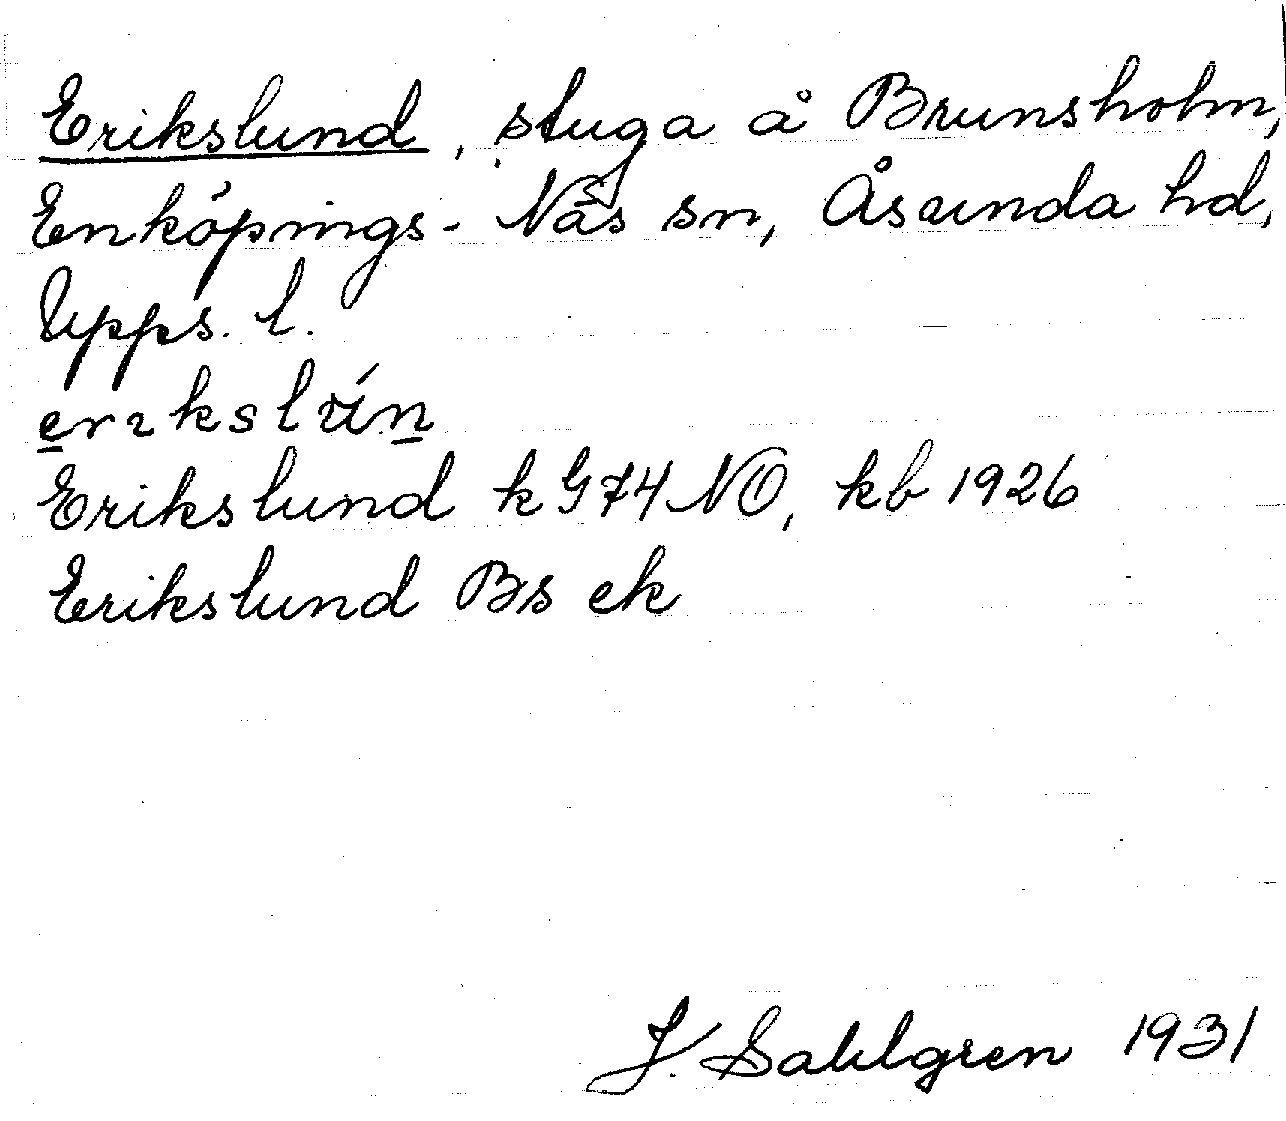 Erikslund, stuga å Brunsholm,
Enköpings-Näs sn, Åsunda hd,
Upps. l.
Erikslund k G74NO, kb 1926
Erikslund Bs ek
J. Sahlgren 1931